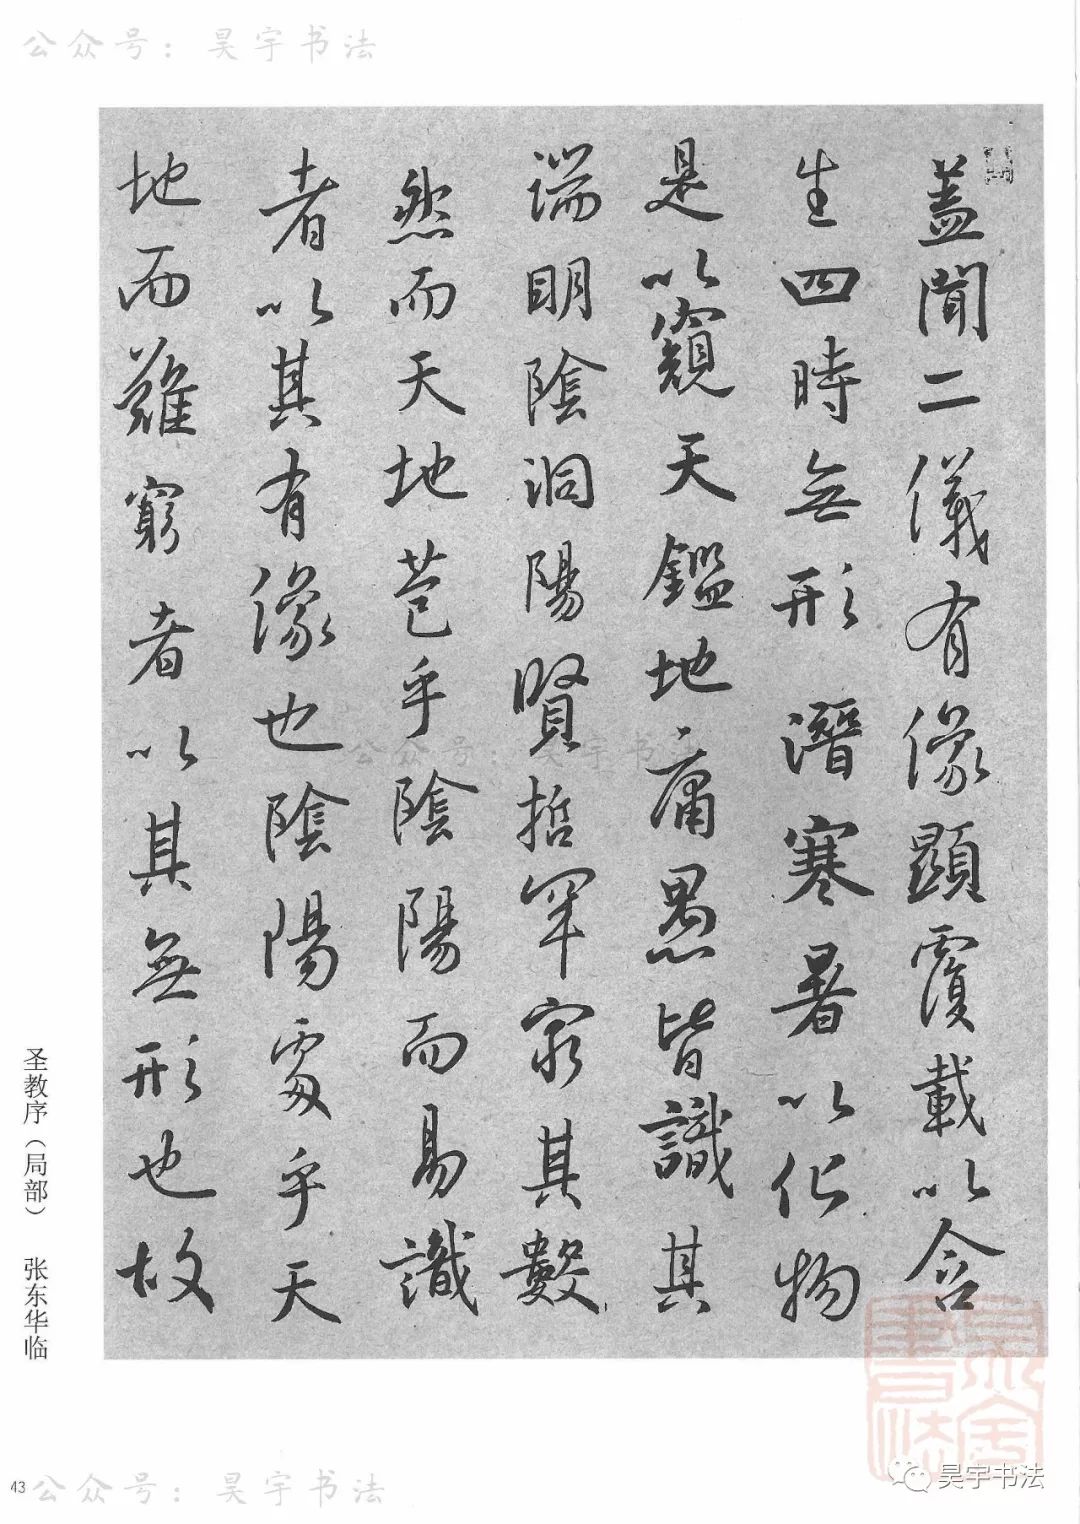 公众号：昊宇书法
蓋聞二儀有像顯覆載以含
生四時無形潛寒暑以化物
是以窺天鑑地庸愚皆識其
端明陰洞陽賢哲罕窮其數
然而天地苞乎陰陽而易識
者以其有像也陰陽處乎天
地而難窮者以其無形也故
公众号：昊宇书法
圣教序（局部） 张东华临
43
公众号：昊宇书法
昊宇书法